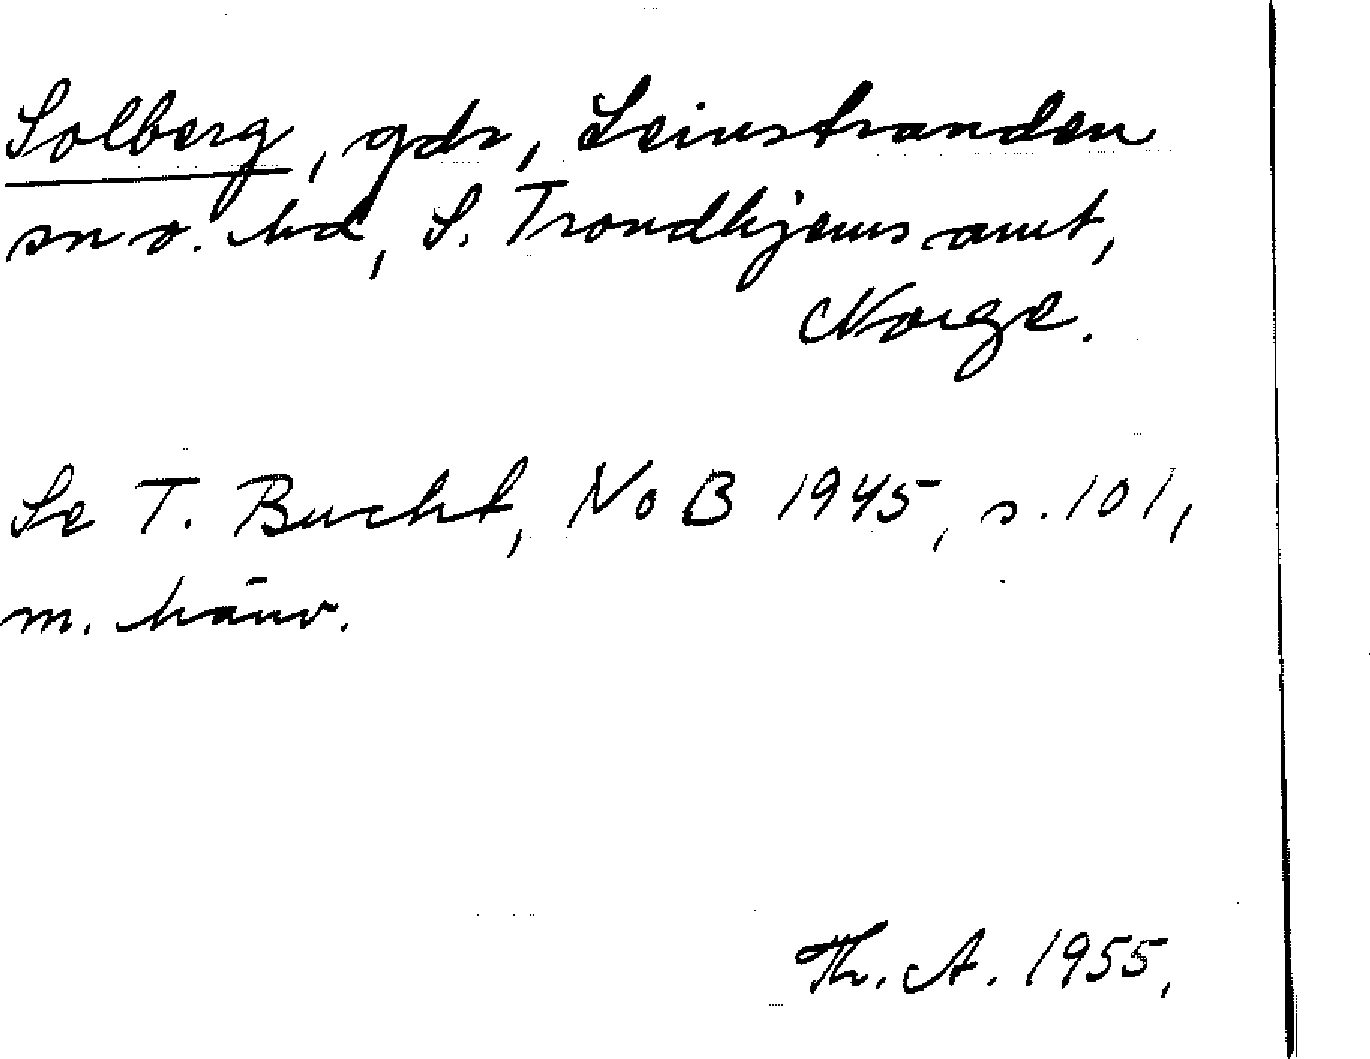 Solberg, gdr, Leinstranden
sn o. hd, S. Trondhjems amt,
Norge.
Se T. Bucht, NoB 1945, s. 101,
m. hänv.
Th. A. 1955,